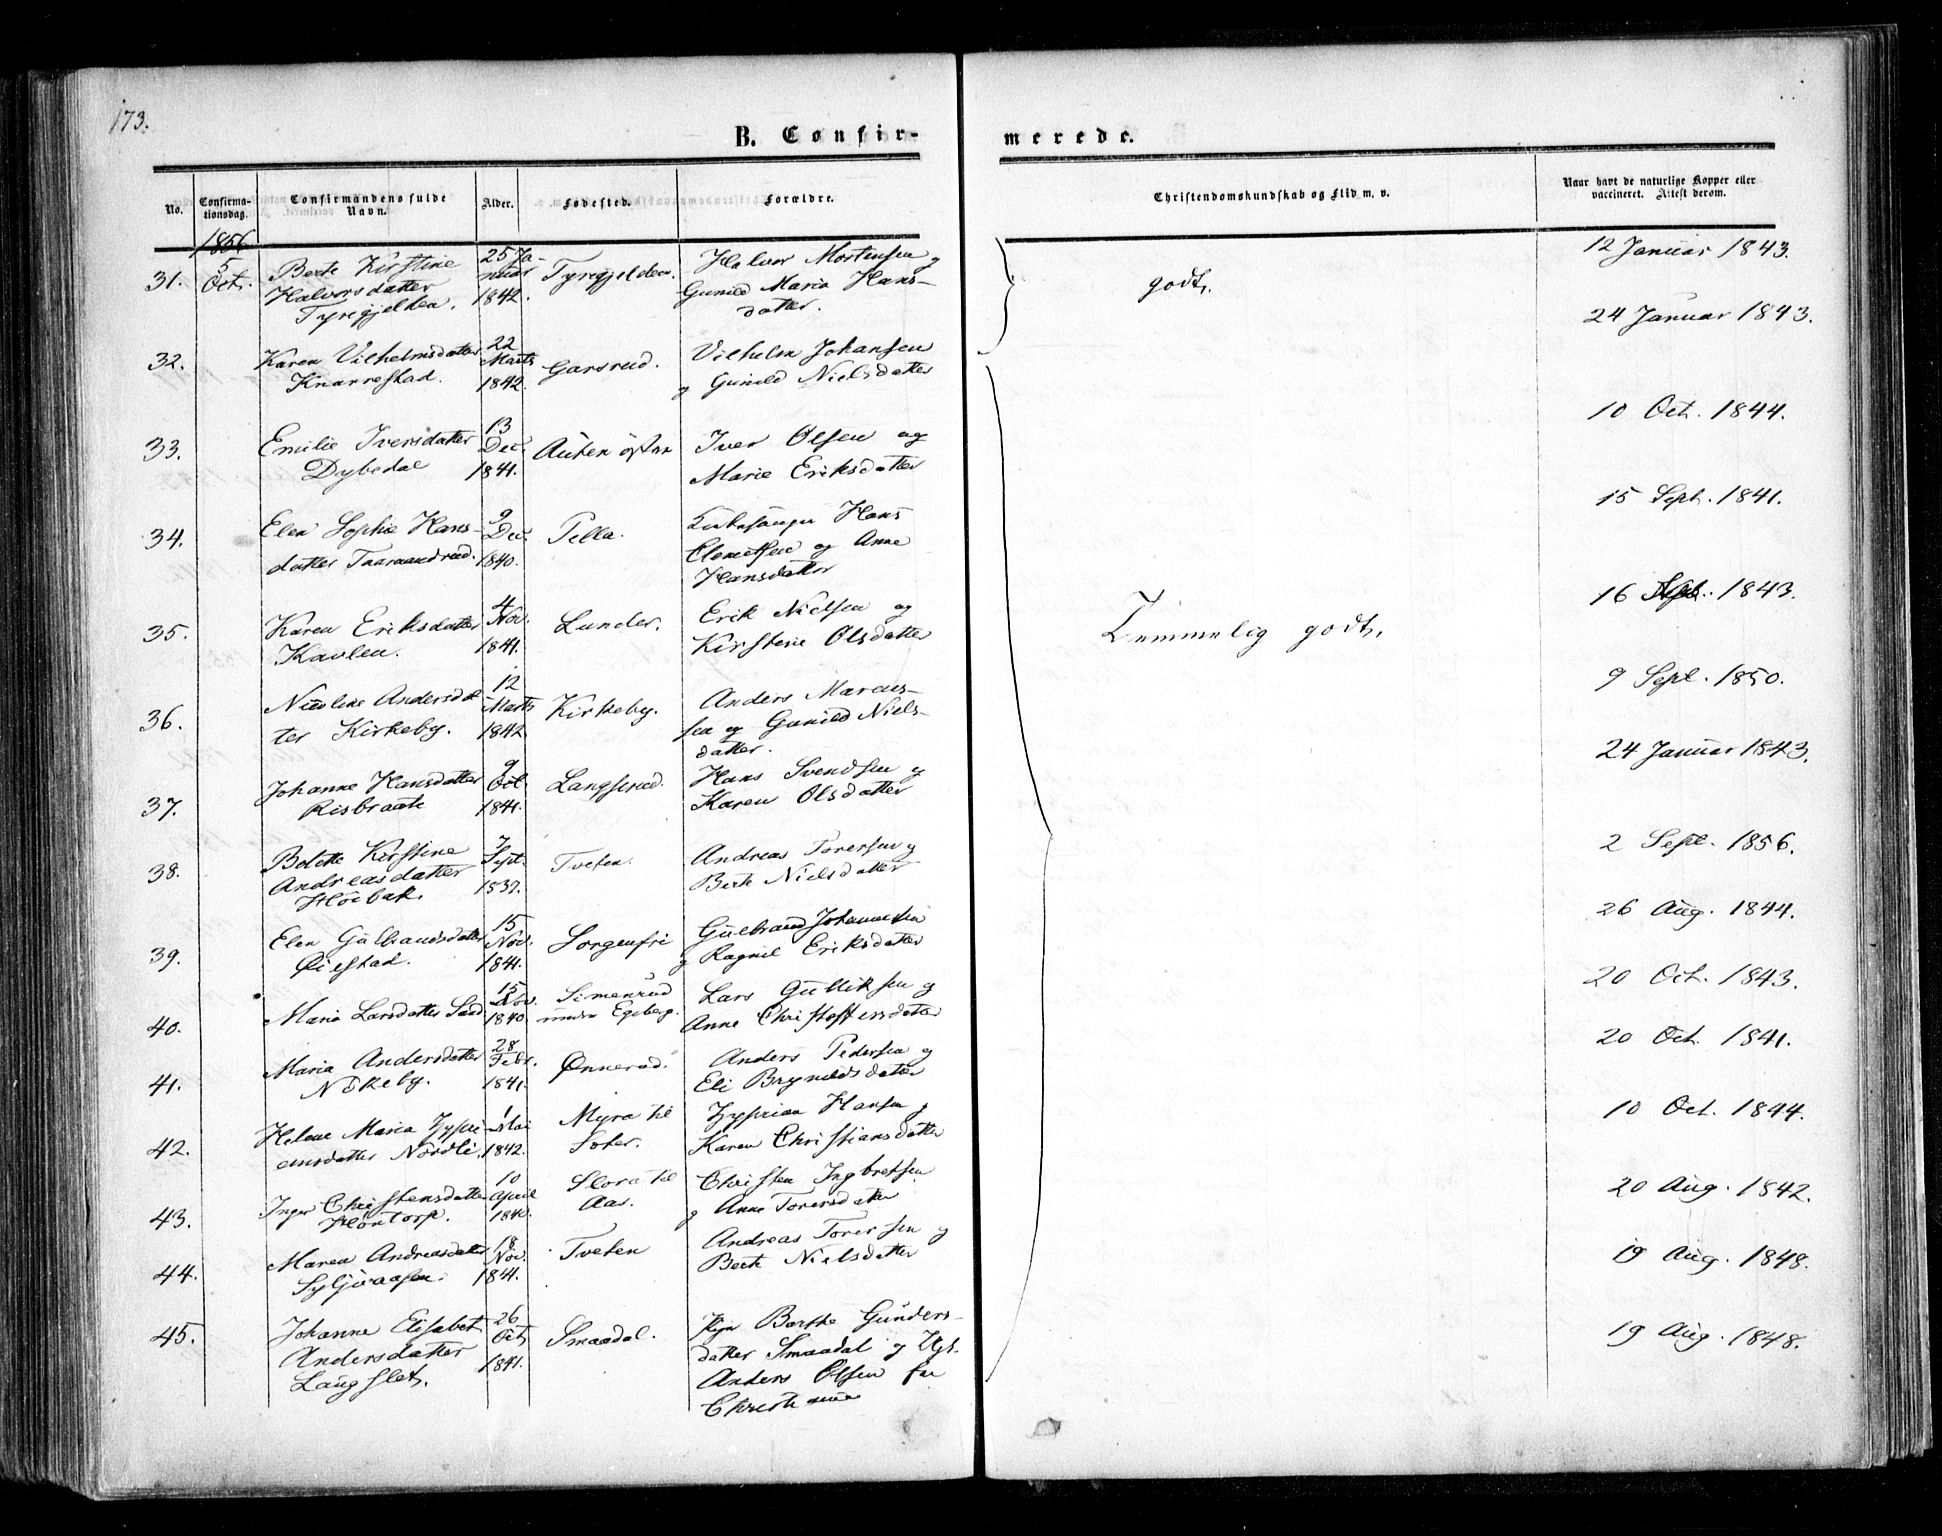 173.
B. Confir-
merede.
No.
Confirma-
tionsdag.
Confirmandens fulde
Navn.
Alder.
Fødested.
Forældre.
Christendomskundskab og Flid m. v.
Naar havt de naturlige Kopper eller
vaccineret. Attest derom.
1856
31. 5 Oct. Berte Kirstine
Halvorsdatter
Tyrigjelden.
25 Ja-
nuar
1842.
Tyrigjelden.
Halvor Mortensen og
Gunild Maria Hans-
datter.
godt.
12 Januar 1843.
32. Karen Vilhelmsdatter
Knarrestad.
22
Marts
1842.
Garsrud.
Vilhelm Johansen
og Gunild Nielsdatter
24 Januar 1843.
33. Emilie Iversdatter
Dybedal
13
Dec.
1841.
Auten østen
Iver Olsen og
Marie Eriksdatter
10 Oct. 1844.
34. Elen Sophie Hans-
datter Taraandrud.
9
Dec.
1840.
Pella.
Kirkesanger Hans
Clemetsen og Anne
Hansdatter
15 Sept. 1841.
35. Karen Eriksdatter
Kavlen.
4
Nov.
1841.
Lunder.
Erik Nielsen og
Kirstene Olsdatter
Temmelig godt.
16 Sept. 1843.
36. Nicoline Andersdat
ter Kirkeby.
12
Marts
1842.
Kirkeby.
Anders Marcus-
sen og Gunild Niels-
datter.
9 Sept. 1850.
37. Johanne Hansdatter
Risbraate
9
Oct.
1841.
Langserud.
Hans Svendsen og
Karen Olsdatter
24 Januar 1843.
38. Bolette Kirstine
Andreasdatter
Høibak.
7
Sept.
1837.
Tveten.
Andreas Torersen og
Berte Nielsdatter
2 Sept. 1856.
39. Elen Gulbrandsdatter
Øiestad.
15
Nov.
1841.
Sorgenfri
Gulbrand Johannesen
og Ragnil Eriksdatter
26 Aug. 1844.
40. Maria Larsdatter Sand
15
Nov.
1840.
Simenrud
under Egeberg.
Lars Gulliksen og
Anne Christoffersdatter
20 Oct. 1843.
41. Maria Andersdatter
Nøkeby.
28
Febr.
1841.
Ønnerud.
Anders Pedersen og
Eli Brynildsdatter
20 Oct. 1841.
42. Helene Maria Zypri
ansdatter Nordli.
1
Mai
1842.
Myra til
Soter.
Zyprian Hansen og
Karen Christiansdatter
10 Oct. 1844.
43. Inger Christensdatter
Høntorp.
10
April
1840.
Slora til
Aas.
Christen Ingbretsen
og Anne Torersdatter
20 Aug. 1842.
44. Maren Andreasdatter
Syljuaasen.
18
Nov.
1841.
Tveten
Andreas Torersen og
Berte Nielsdatter
19 Aug. 1848.
45. Johanne Elisabet
Andersdatter
Langslet.
26
Oct.
1841.
Smaadal.
Pige Berthe Gunders-
datter Smaadal og Ugf.
Anders Olsen fra
19 Aug. 1848.